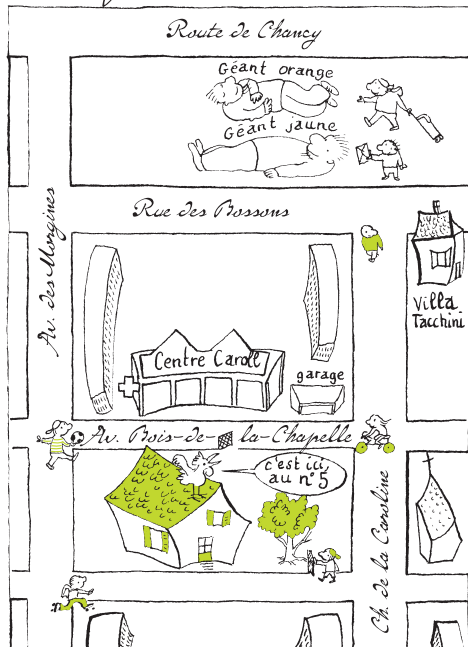 Route de Chancy
Géant orange
Géant jaune
Rue des Bossons
Av. des Morgines
Villa
Tacchini
Centre Caroll
garage
Av. Bois-de-la-Chapelle
c'est ici,
au n° 5
Ch. de la Caroline